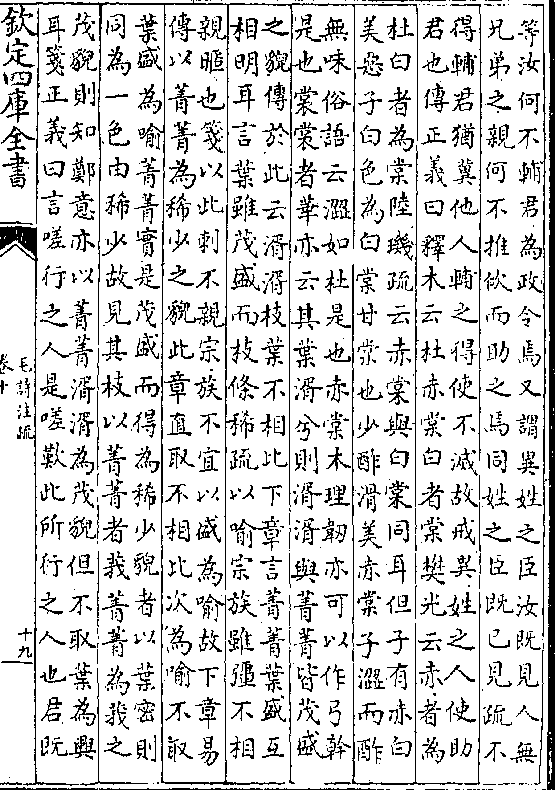 等汝何不輔君為政令焉又謂異姓之臣汝既見人無
兄弟之親何不推佽而助之焉同姓之臣既已見疏不
得輔君猶冀他人輔之得使不滅故戒異姓之人使助
君也傳正義曰釋木云杜赤棠白者棠樊光云赤者為
杜白者為棠陸璣疏云赤棠與白棠同耳但子有赤白
美惡子白色為白棠甘棠也少酢滑美赤棠子澀而酢
無味俗語云澀如杜是也赤棠木理韌亦可以作弓幹
是也裳裳者華亦云其葉湑兮則湑湑與菁菁皆茂盛
之貌傳於此云湑湑枝葉不相比下章言菁菁葉盛互
相明耳言葉雖茂盛而枝條稀疏以喻宗族雖彊不相
親暱也箋以此刺不親宗族不宜以盛為喻故下章易
傳以菁菁為稀少之貌此章直取不相比次為喻不取
葉盛為喻菁菁實是茂盛而得為稀少貌者以葉密則
同為一色由稀少故見其枝以菁菁者莪菁菁為莪之
茂貌則知鄭意亦以菁菁湑湑為茂貌但不取葉為興
耳箋正義曰言嗟行之人是嗟歎此所行之人也君既
欽定四庫全書
毛詩注疏
卷十
十九